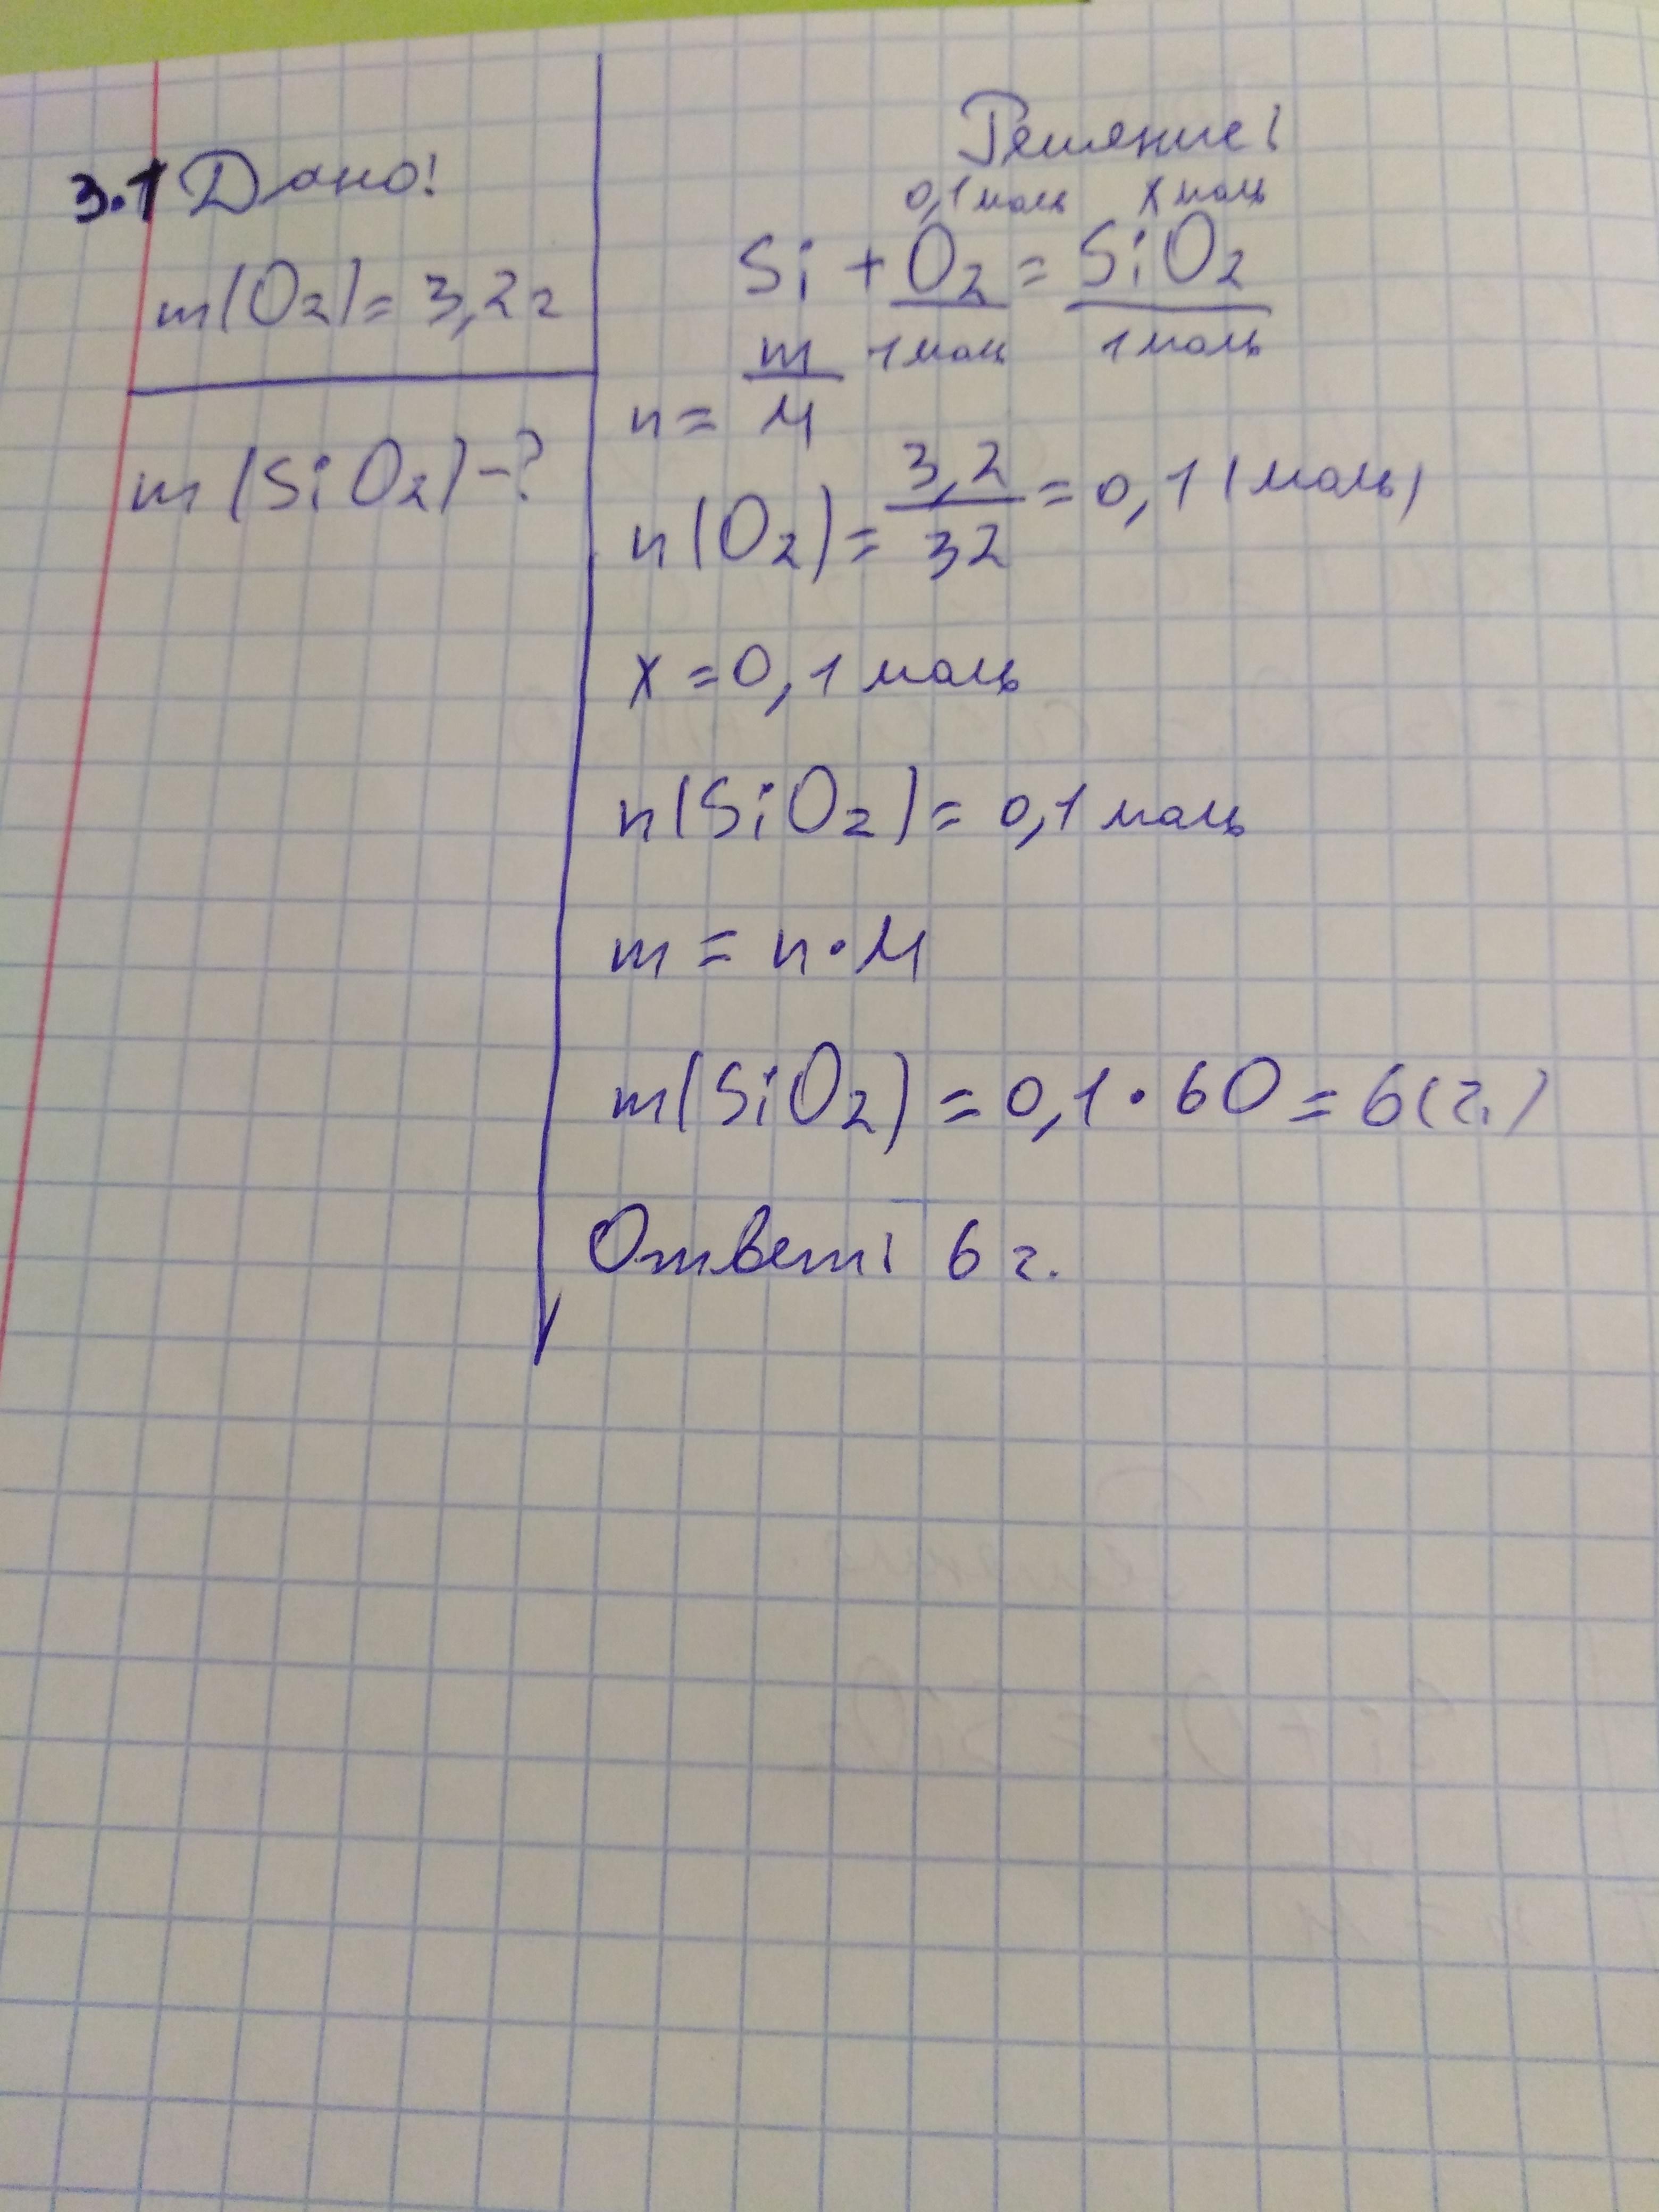 3.1 Дано:
m(O2)= 3,2г
m(SiO2)-?
Решение:
0,1моль х моль
Si + O2 = SiO2
1моль 1моль
n = m/M
n(O2)= 3,2/32 = 0,1(моль)
x = 0,1 моль
n(SiO2)= 0,1 моль
m = n·M
m(SiO2) = 0,1·60 = 6(г.)
Ответ: 6 г.